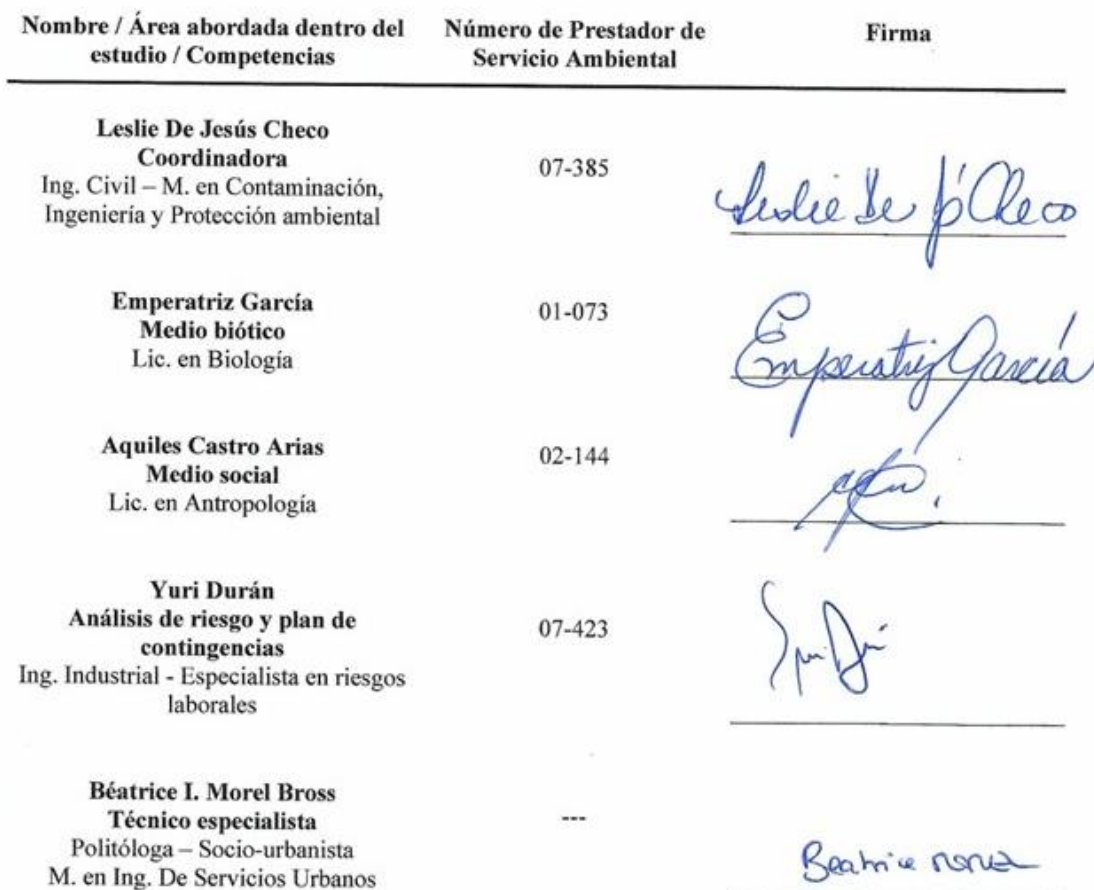 Nombre / Área abordada dentro del
estudio / Competencias
Número de Prestador de
Servicio Ambiental
Firma
Leslie De Jesús Checo
Coordinadora
Ing. Civil – M. en Contaminación,
Ingeniería y Protección ambiental
07-385
Leslie De Js Checo
Emperatriz García
Medio biótico
Lic. en Biología
01-073
Emperatriz García
Aquiles Castro Arias
Medio social
Lic. en Antropología
02-144
Yuri Durán
Análisis de riesgo y plan de
contingencias
Ing. Industrial - Especialista en riesgos
laborales
07-423
Béatrice I. Morel Bross
Técnico especialista
Politóloga – Socio-urbanista
M. en Ing. De Servicios Urbanos
---
Beatrice Morel